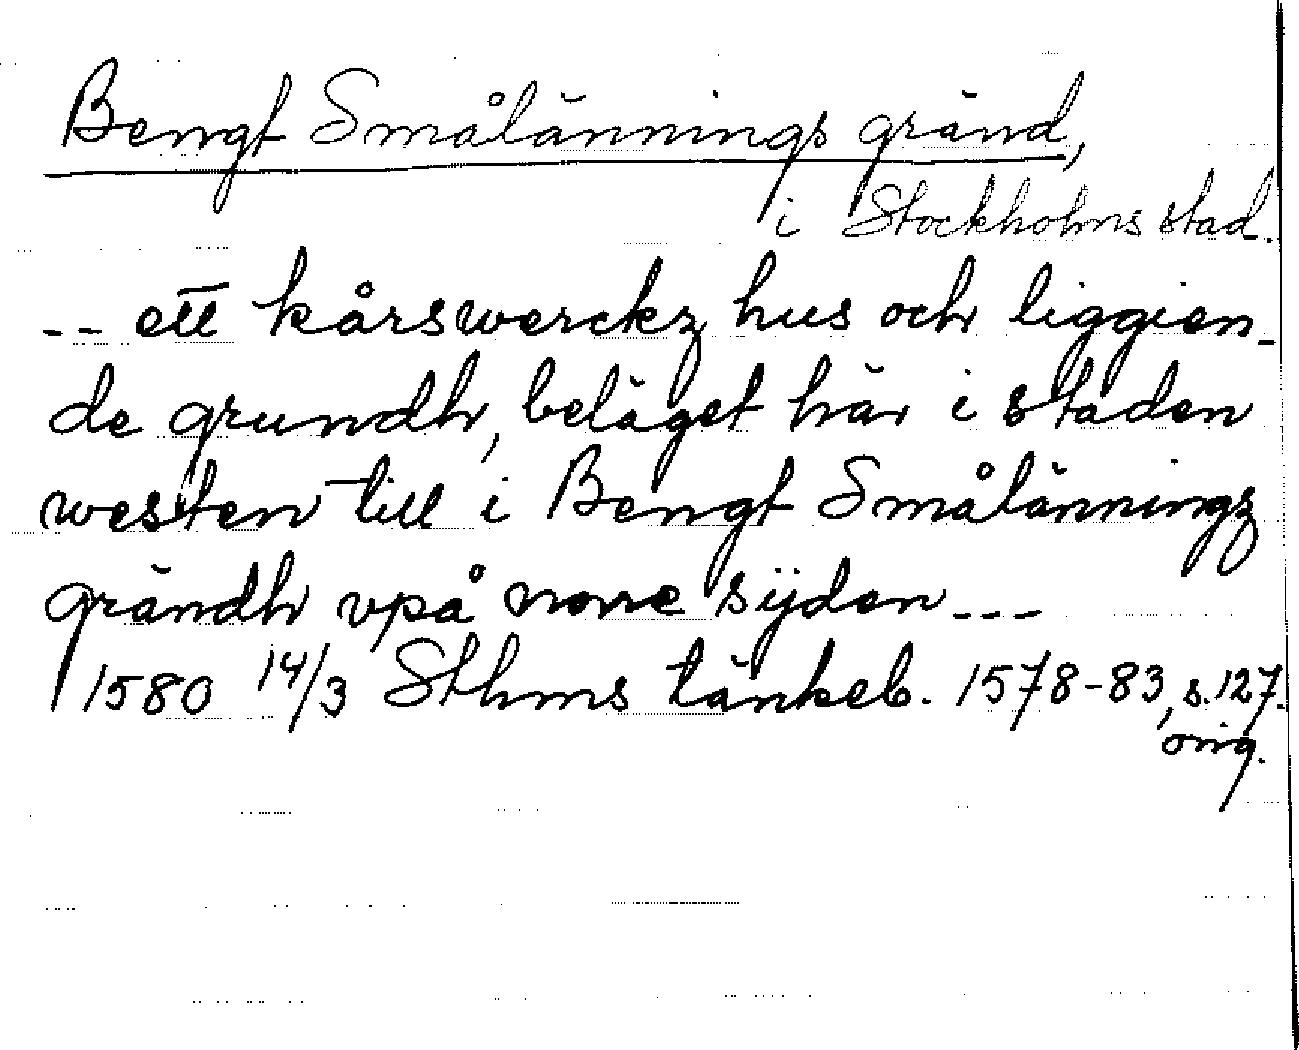 Bengt Smålännings gränd,
i Stockholms stad.
-- ett kårswerckz hus och liggien-
de grundh, beläget här i staden
westen till i Bengt Smålänningz
grändh vpå norre sijden ---
1580 14/3 Sthms tänkeb. 1578-83, s. 127.
orig.